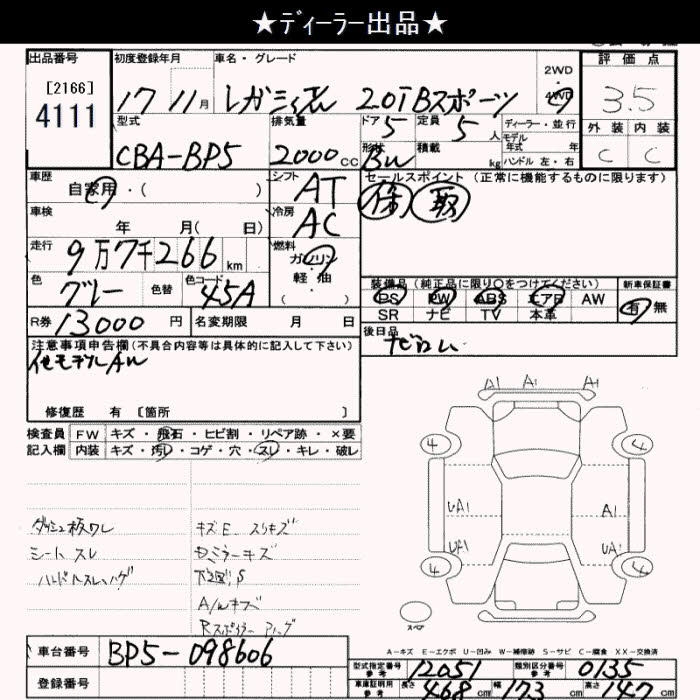 ★ディーラー出品★
出品番号 初度登録年月 車名・グレード 2WD・4WD 評価点
[2166] 4111 17 11月 レガシィ 2.0i Bスポーツ 3.5
型式 排気量 ドア 定員 ディーラー・並行 外装 内装
CBA-BP5 2000cc 5 5人 モデル年式 年 C C
形状 積載 kg ハンドル 左・右
BW
車歴 シフト セールスポイント (正常に機能するものに限ります)
自家用・( ) AT 保 取
車検 冷房
年 月( 日) AC
走行 燃料
9万7千266km ガソリン・軽油
( )
色 色替 色コード 装備品(純正品に限り○をつけてください) 新車保証書
グレー 45A PS PW ABS エアB AW 有 無
SR ナビ TV 本革
R券 13000円 名変期限 月 日 後日品
ナビロム
注意事項申告欄(不具合内容等は具体的に記入して下さい)
他モデルAW
修復歴 有 [箇所 ]
A1 A1 A1
検査員 FW キズ・飛石・ヒビ割・リペア跡・×要
記入欄 内装 キズ・汚レ・コゲ・穴・スレ・キレ・破レ
4 4
UA1 A1
UA1 UA1
4 4
ダッシュ板ワレ キズE スリキズ
シートスレ ミラーキズ
ハンドルスレ・ハゲ 下廻りS
A/Wキズ
スペア
A－キズ E－エクボ U－凹み W－補修跡 S－サビ C－腐食 XX－交換済
車台番号 BP5-098606
型式指定番号 参考 12051 類別区分番号 参考 0135
登録番号
車庫証明用 参考 長さ 468cm 幅 173cm 高さ 147cm